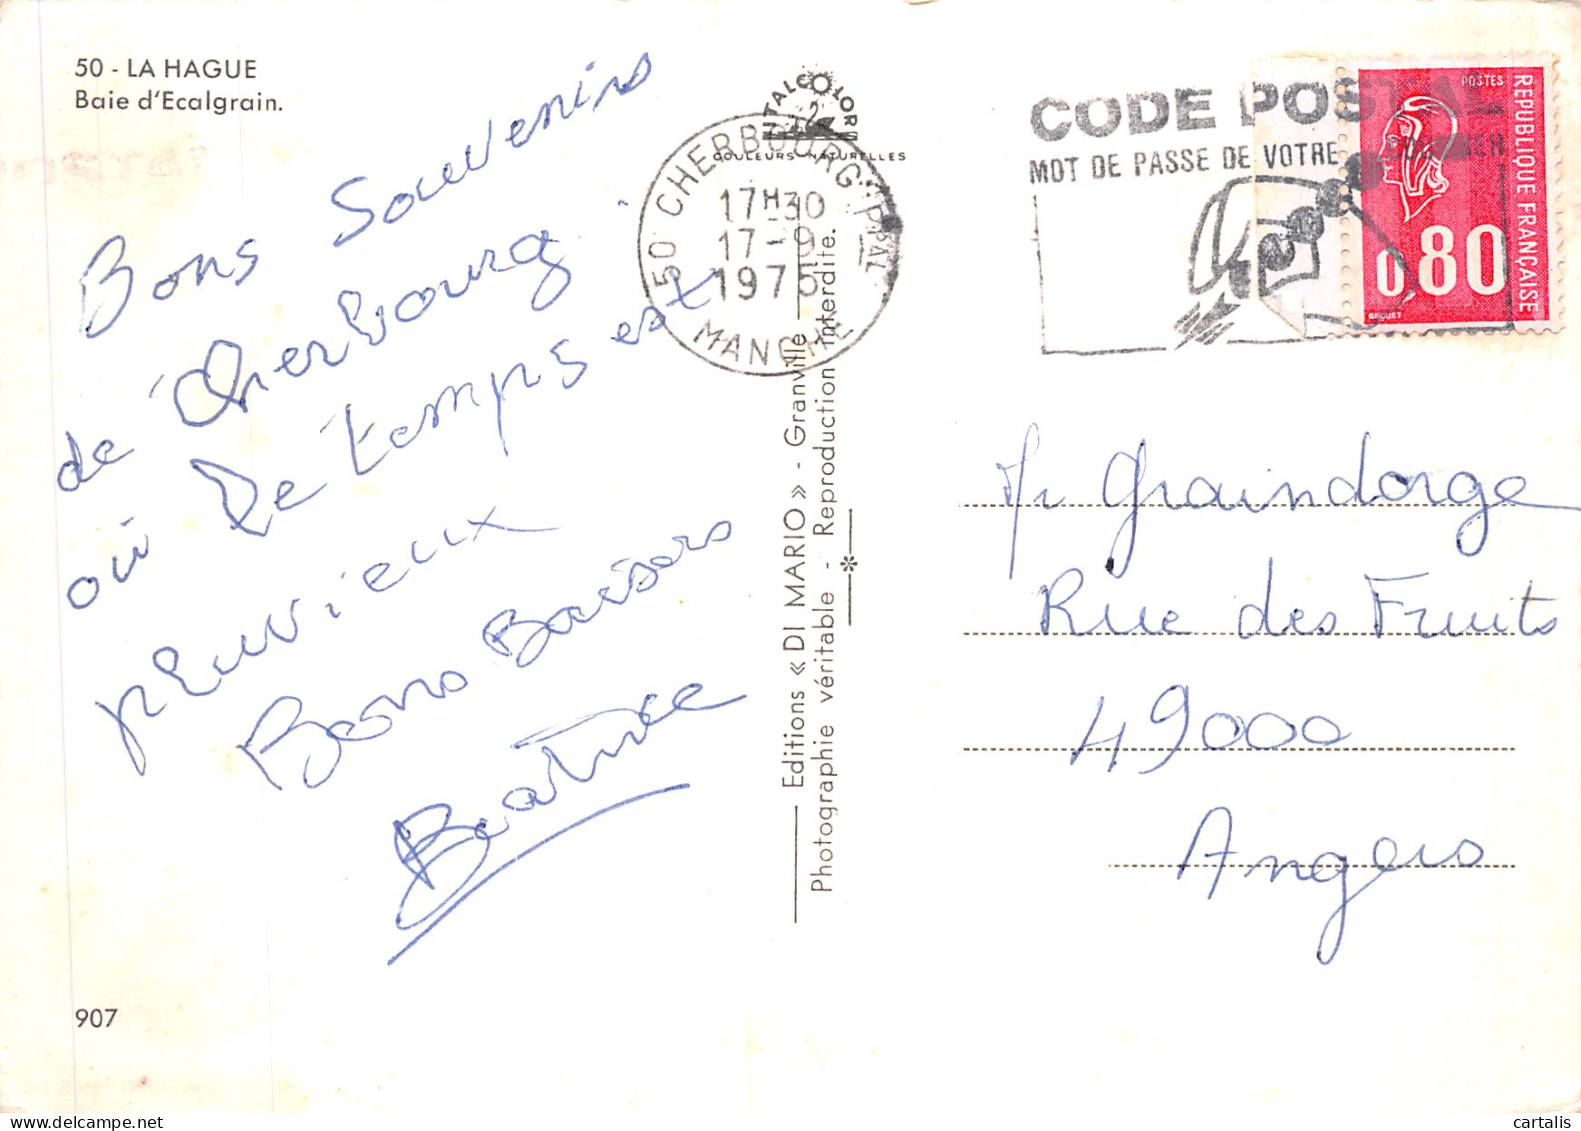 50 - LA HAGUE
Baie d'Ecalgrain.
Bons Souvenirs
de Cherbourg
où le temps est
pluvieux
Bons Baisers
Beatrice
907
ITALCOLOR
COULEURS NATURELLES
50 CHERBOURG PPAL
17H30
17-9
1975
MANCHE
Editions « DI MARIO » - Granville
Photographie véritable - Reproduction interdite.
CODE POSTAL
MOT DE PASSE DE VOTRE COURRIER
POSTES
REPUBLIQUE FRANÇAISE
0,80
BEQUET
Mr Graindorge
Rue des Fruits
49000
Angers
cartalis